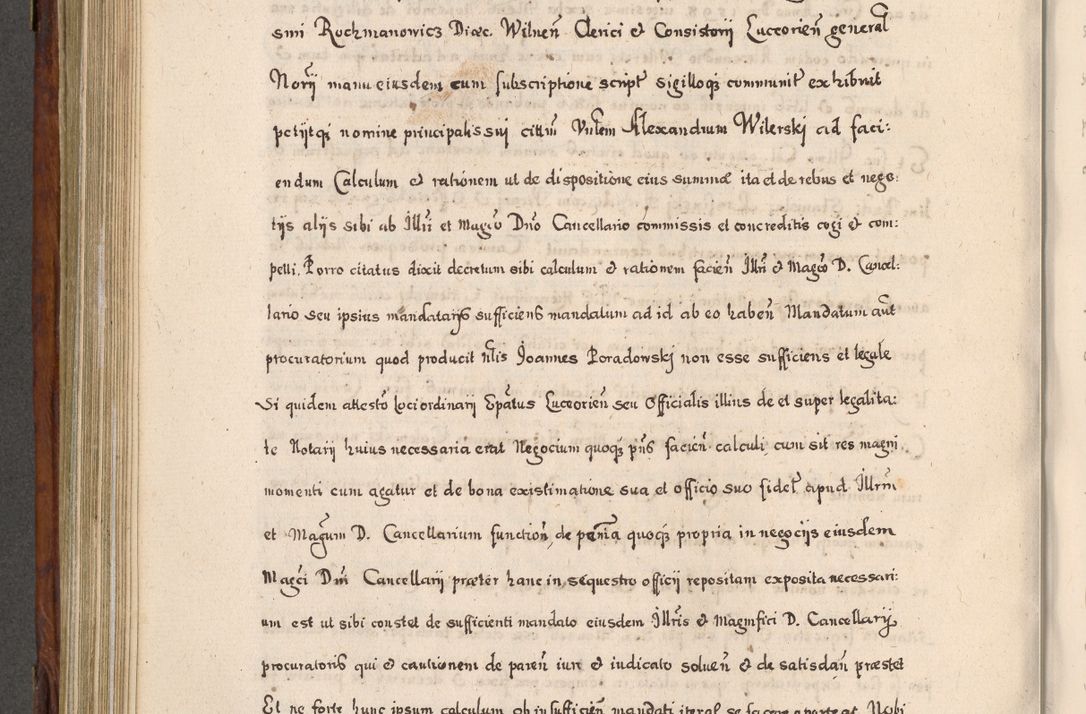 smi Rochmanowicz Diœc. Wilneñ Clerici et Consistorij Luceorieñ general
Norij manu eiusdem cum subscriptione script sigilloqз communit exhibuit
petijtqз nomine principalis sui citum Vnlem Alexandrum Wilerski ad faci:
endum Calculum et rationem ut de dispositione eius summæ ita et de rebus et nego:
tijs alijs sibi ab Illri et Magco Dno Cancellario commissis et concreditis cogi et com:
pelli. Porro citatus dixit decretum sibi calculum et rationem facieñ Illri et Magco D. Cancel:
lario seu ipsius mandatarijs sufficiens mandatum ad id ab eo habeñ Mandatum aut
procuratorium quod producit nlis Joannes Poradowskj non esse sufficiens et legale
Si quidem attesto loci ordinarij Epatus Luceorieñ seu Officialis illius de et super legalita:
te Notarij huius necessaria erat Negocium quoqз pns facieñ calculi cum sit res magni
momenti cum agatur et de bona existimatione sua et officio suo fidel apud Illrm
et Magcum D. Cancellarium functioñ, de penia quoqз propria in negocijs eiusdem
Magci Dni Cancellarij præter hanc in sequestro officij repositam exposita necessari:
um est ut sibi constet de sufficienti mandato eiusdem Illris et Magnifici D. Cancellarij
procuratoris qui et cautionem de pareñ iuri et iudicato solueñ et de satisdañ præstet
Et ne forte hunc ipsum calculum ob insufficieñ mandati iteral se facere oporteat Nobi